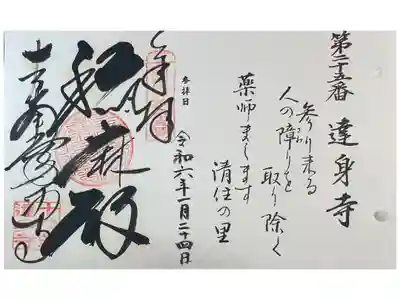 第二十五番 達身寺
参り来る
人の障りを 取り除く
薬師まします 清住の里
参拝日
令和六年一月二十四日
奉拝
瑠璃殿
十九山達身寺